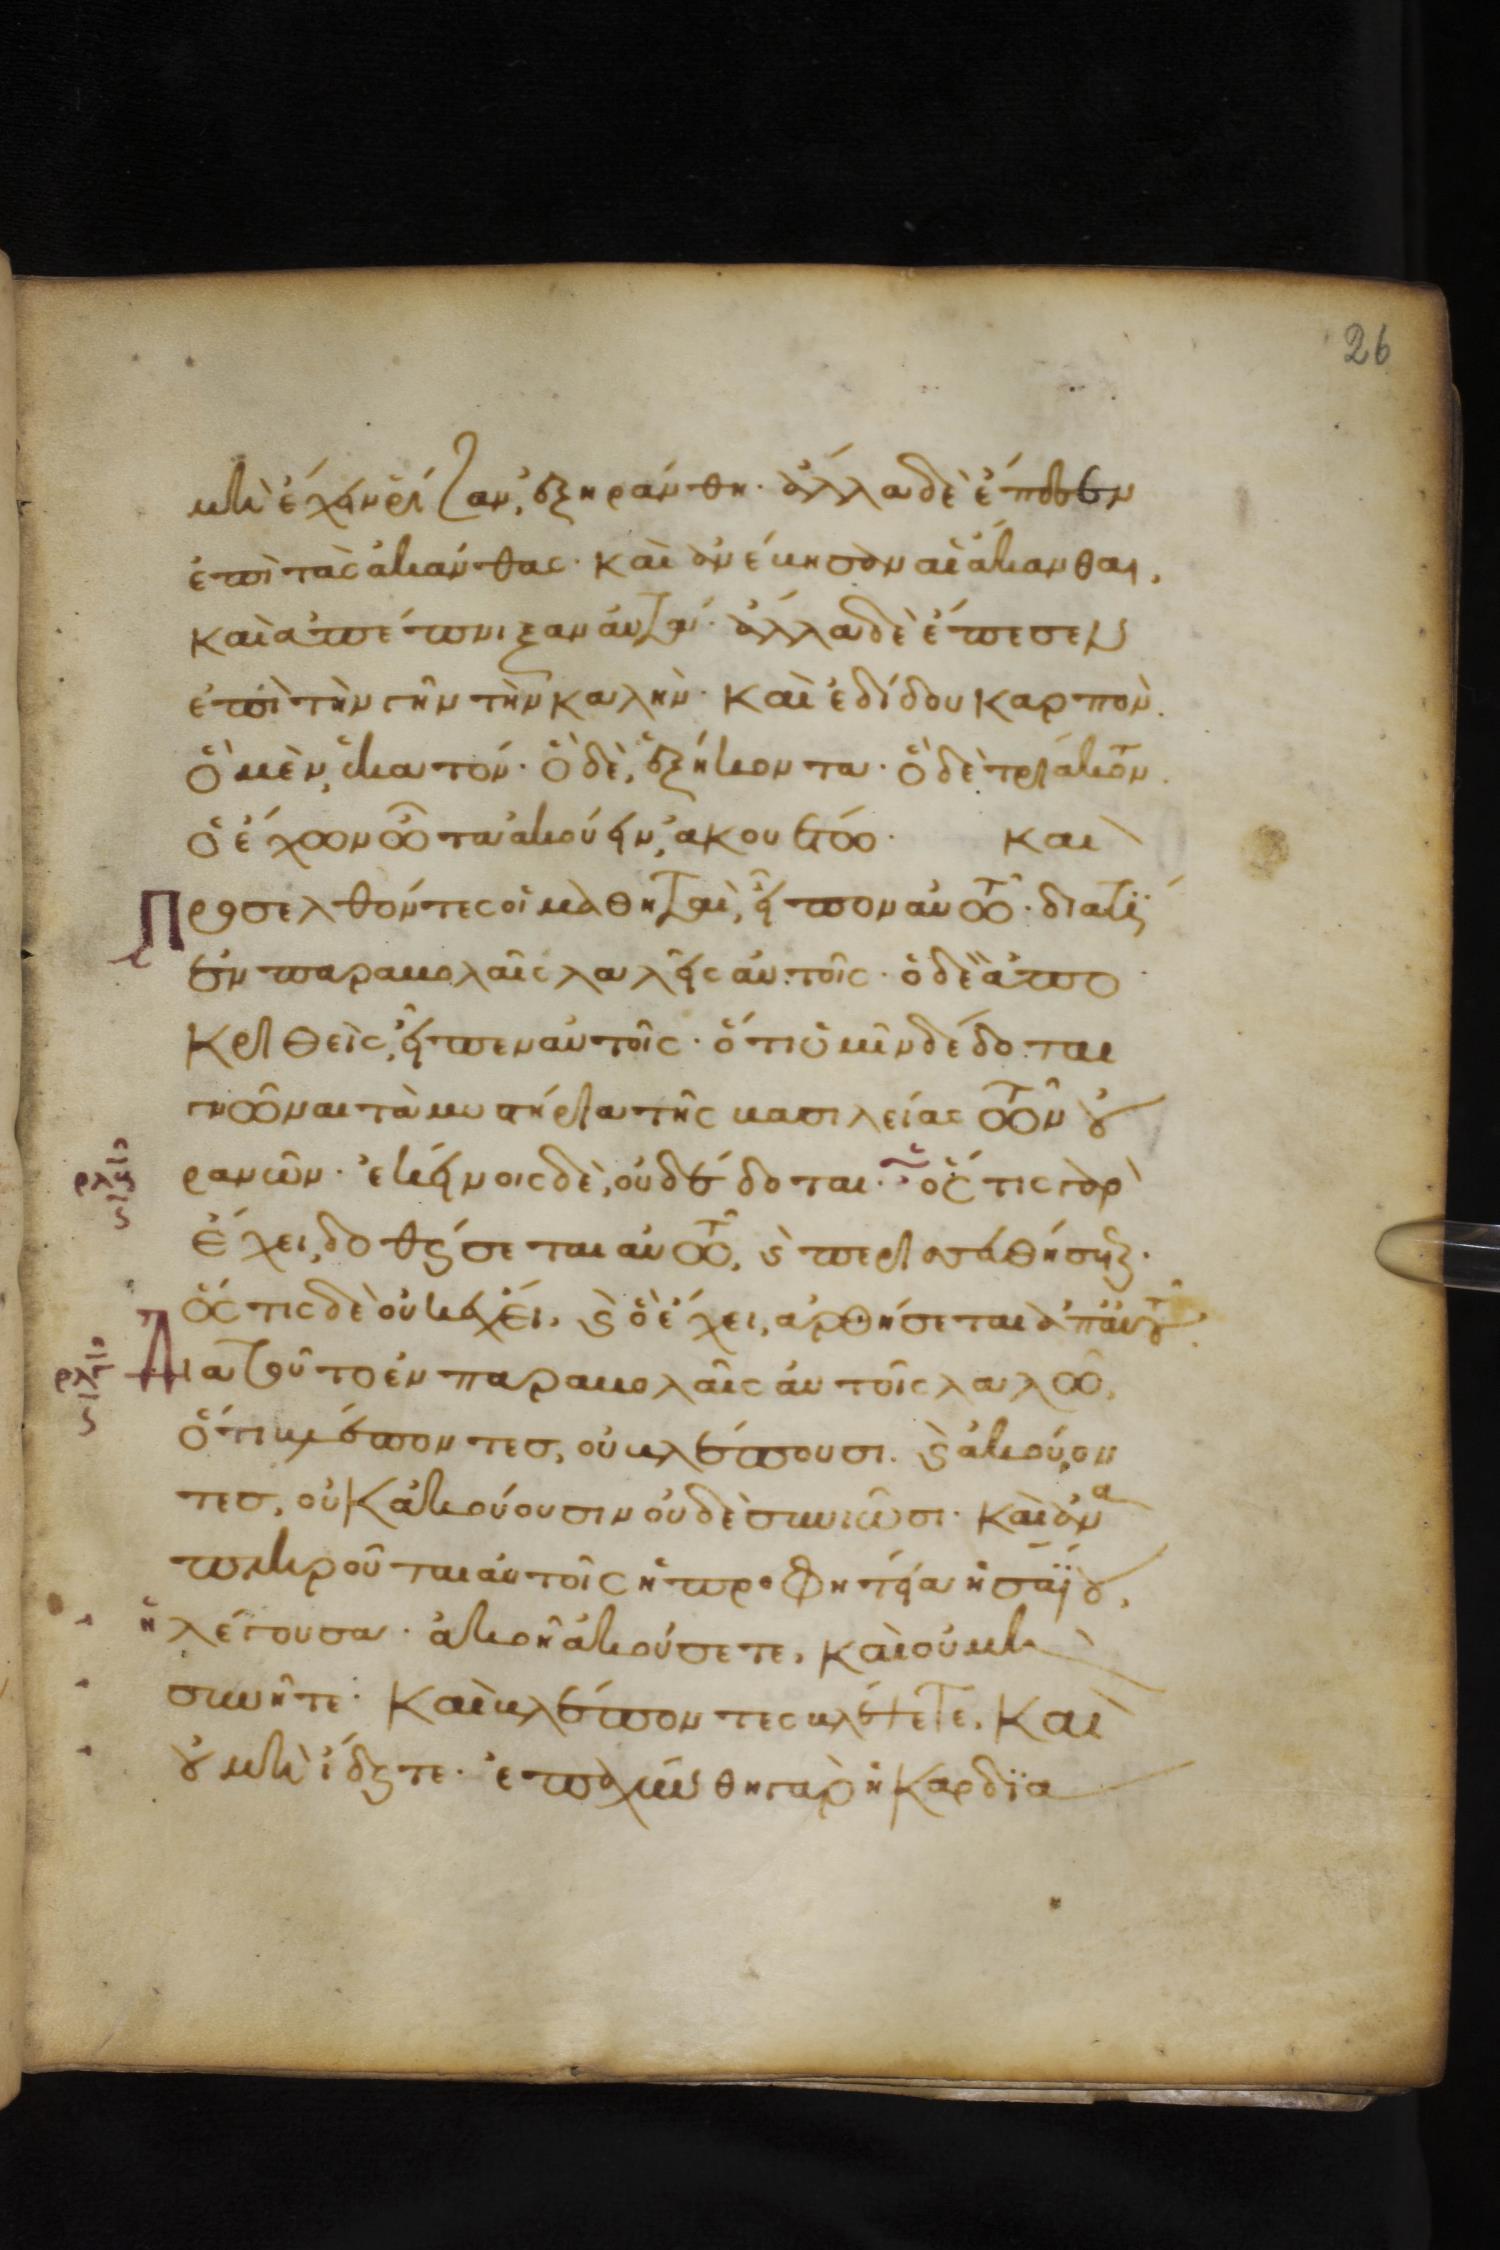 26
μὴ ἔχειν ῥίζαν, ἐξηράνθη· ἄλλα δὲ ἔπεσεν
ἐπὶ τὰς ἀκάνθας· καὶ ἀνέβησαν αἱ ἄκανθαι,
καὶ ἀπέπνιξαν αὐτά· ἄλλα δὲ ἔπεσεν
ἐπὶ τὴν γῆν τὴν καλὴν· καὶ ἐδίδου καρπὸν.
ὃ μὲν, ἑκατόν· ὃ δὲ, ἑξήκοντα· ὃ δὲ τριάκοντ.
ὁ ἔχων ὦτα ἀκούειν, ἀκουέτω· καὶ
Προσελθόντες οἱ μαθηταὶ, εἶπον αὐτῶ· διατί
ἐν παραβολαῖς λαλεῖς αὐτοῖς· ὁ δὲ ἀπο
κριθεὶς, εἶπεν αὐτοῖς· ὅτι ὑμῖν δέδοται
γνῶναι τὰ μυστήρια τῆς βασιλείας τῶν οὐ
ρλβ
ς
ρανῶν· ἐκείνοις δὲ, οὐ δέδοται· ὅστις γὰρ
ἔχει, δοθήσεται αὐτῶ, ϗ περισσευθήσεται·
ὅστις δὲ οὐκ ἔχει, ϗ ὃ ἔχει, ἀρθήσεται ἀπ' αὐτοῦ.
ρλγ
ς
Διατοῦτο ἐν παραβολαῖς αὐτοῖς λαλῶ,
ὅτι βλέποντες, οὐ βλέπουσι. ϗ ἀκούον
τες, οὐκ ἀκούουσιν οὐδὲ συνιῶσι· καὶ ἀνα
πληροῦται αὐτοῖς ἡ προφητεία ἡσαΐου,
ἡ λέγουσα· ἀκοῇ ἀκούσετε, καὶ οὐ μὴ
συνῆτε· καὶ βλέποντες βλέψετε, καὶ
οὐ μὴ ἴδητε· ἐπαχύνθη γὰρ ἡ καρδΐα